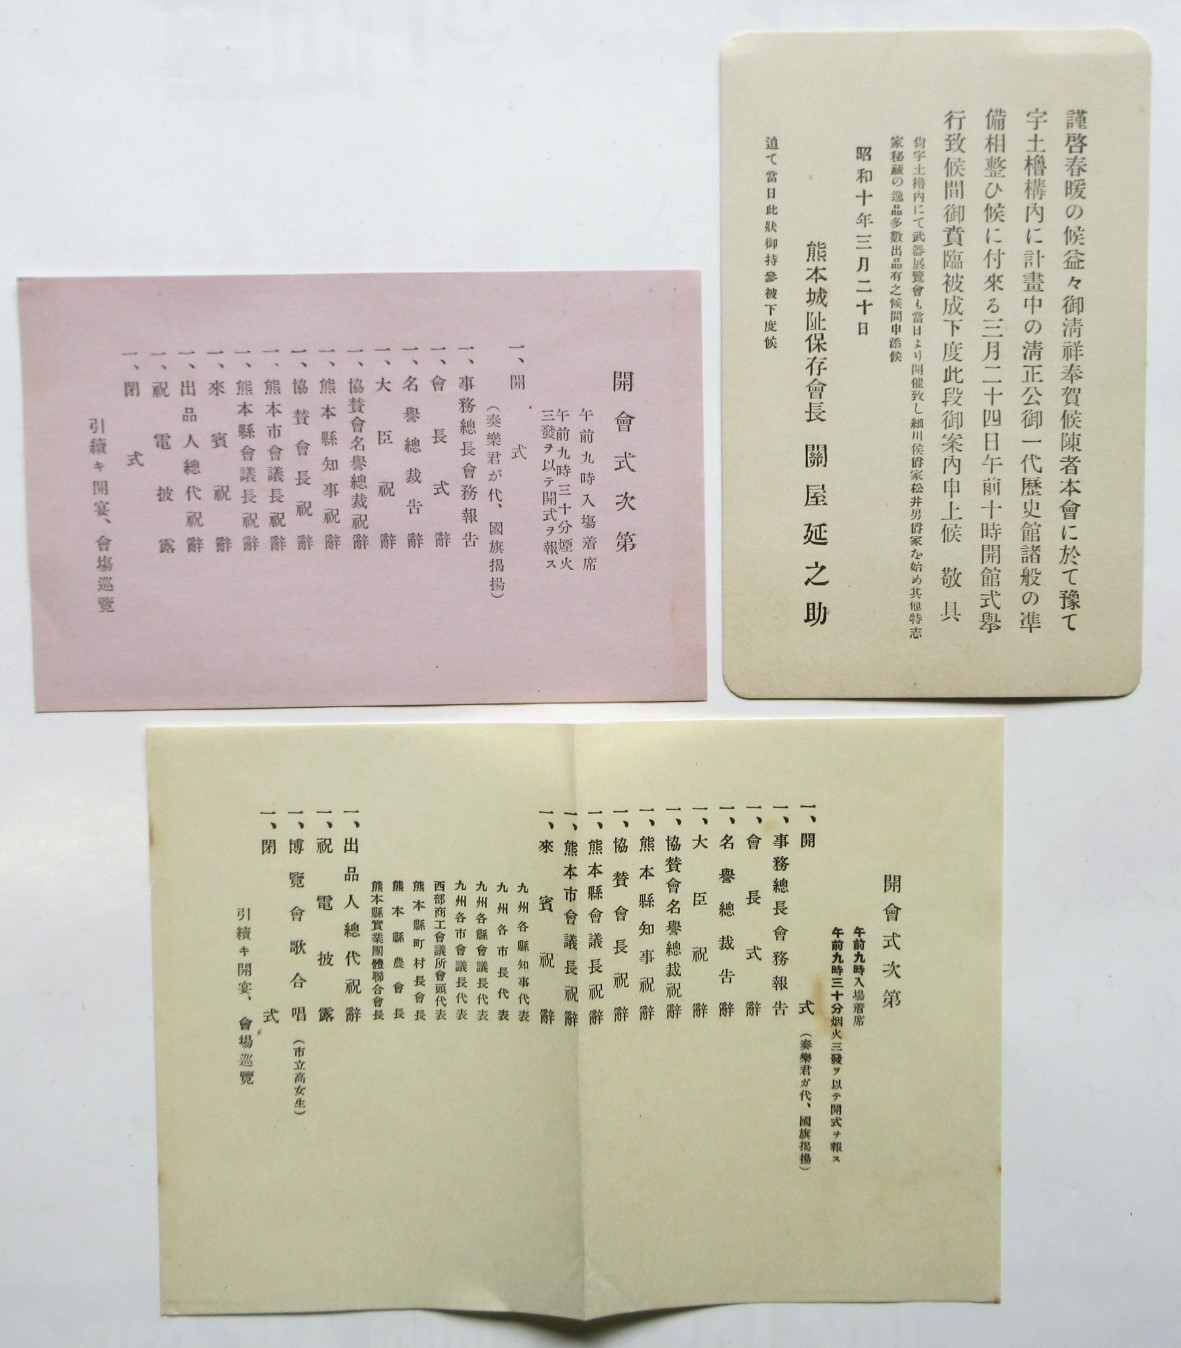 謹啓春暖の候益々御淸祥奉賀候陳者本會に於て豫て
宇土櫓構內に計畫中の淸正公御一代歷史館諸般の準
備相整ひ候に付來る三月二十四日午前十時開館式擧
行致候間御賁臨被成下度此段御案內申上候 敬具
尙宇土櫓內にて武器展覽會も當日より開催致し細川侯爵家松井男爵家を始め其他特志
家秘藏の逸品多數出品有之候間申添候
昭和十年三月二十日
熊本城阯保存會長 關屋延之助
追て當日此狀御持參被下度候
開會式次第
午前九時入場着席
午前九時三十分煙火
三發ヲ以テ開式ヲ報ス
一、開式
(奏樂君が代、國旗揭揚)
一、事務總長會務報告
一、會長式辭
一、名譽總裁告辭
一、大臣祝辭
一、協贊會名譽總裁祝辭
一、熊本縣知事祝辭
一、協贊會長祝辭
一、熊本市會議長祝辭
一、熊本縣會議長祝辭
一、來賓祝辭
一、出品人總代祝辭
一、祝電披露
一、閉式
引續キ開宴、會場巡覽
開會式次第
午前九時入場着席
午前九時三十分烟火三發ヲ以テ開式ヲ報ス
一、開式(奏樂君ガ代、國旗揭揚)
一、事務總長會務報告
一、會長式辭
一、名譽總裁告辭
一、大臣祝辭
一、協贊會名譽總裁祝辭
一、熊本縣知事祝辭
一、協贊會長祝辭
一、熊本縣會議長祝辭
一、熊本市會議長祝辭
一、來賓祝辭
九州各縣知事代表
九州各市長代表
九州各縣會議長代表
九州各市會議長代表
西部商工會議所會頭代表
熊本縣町村長會長
熊本縣農會長
熊本縣實業團體聯合會長
一、出品人總代祝辭
一、祝電披露
一、博覽會歌合唱(市立高女生)
一、閉式
引續キ開宴、會場巡覽